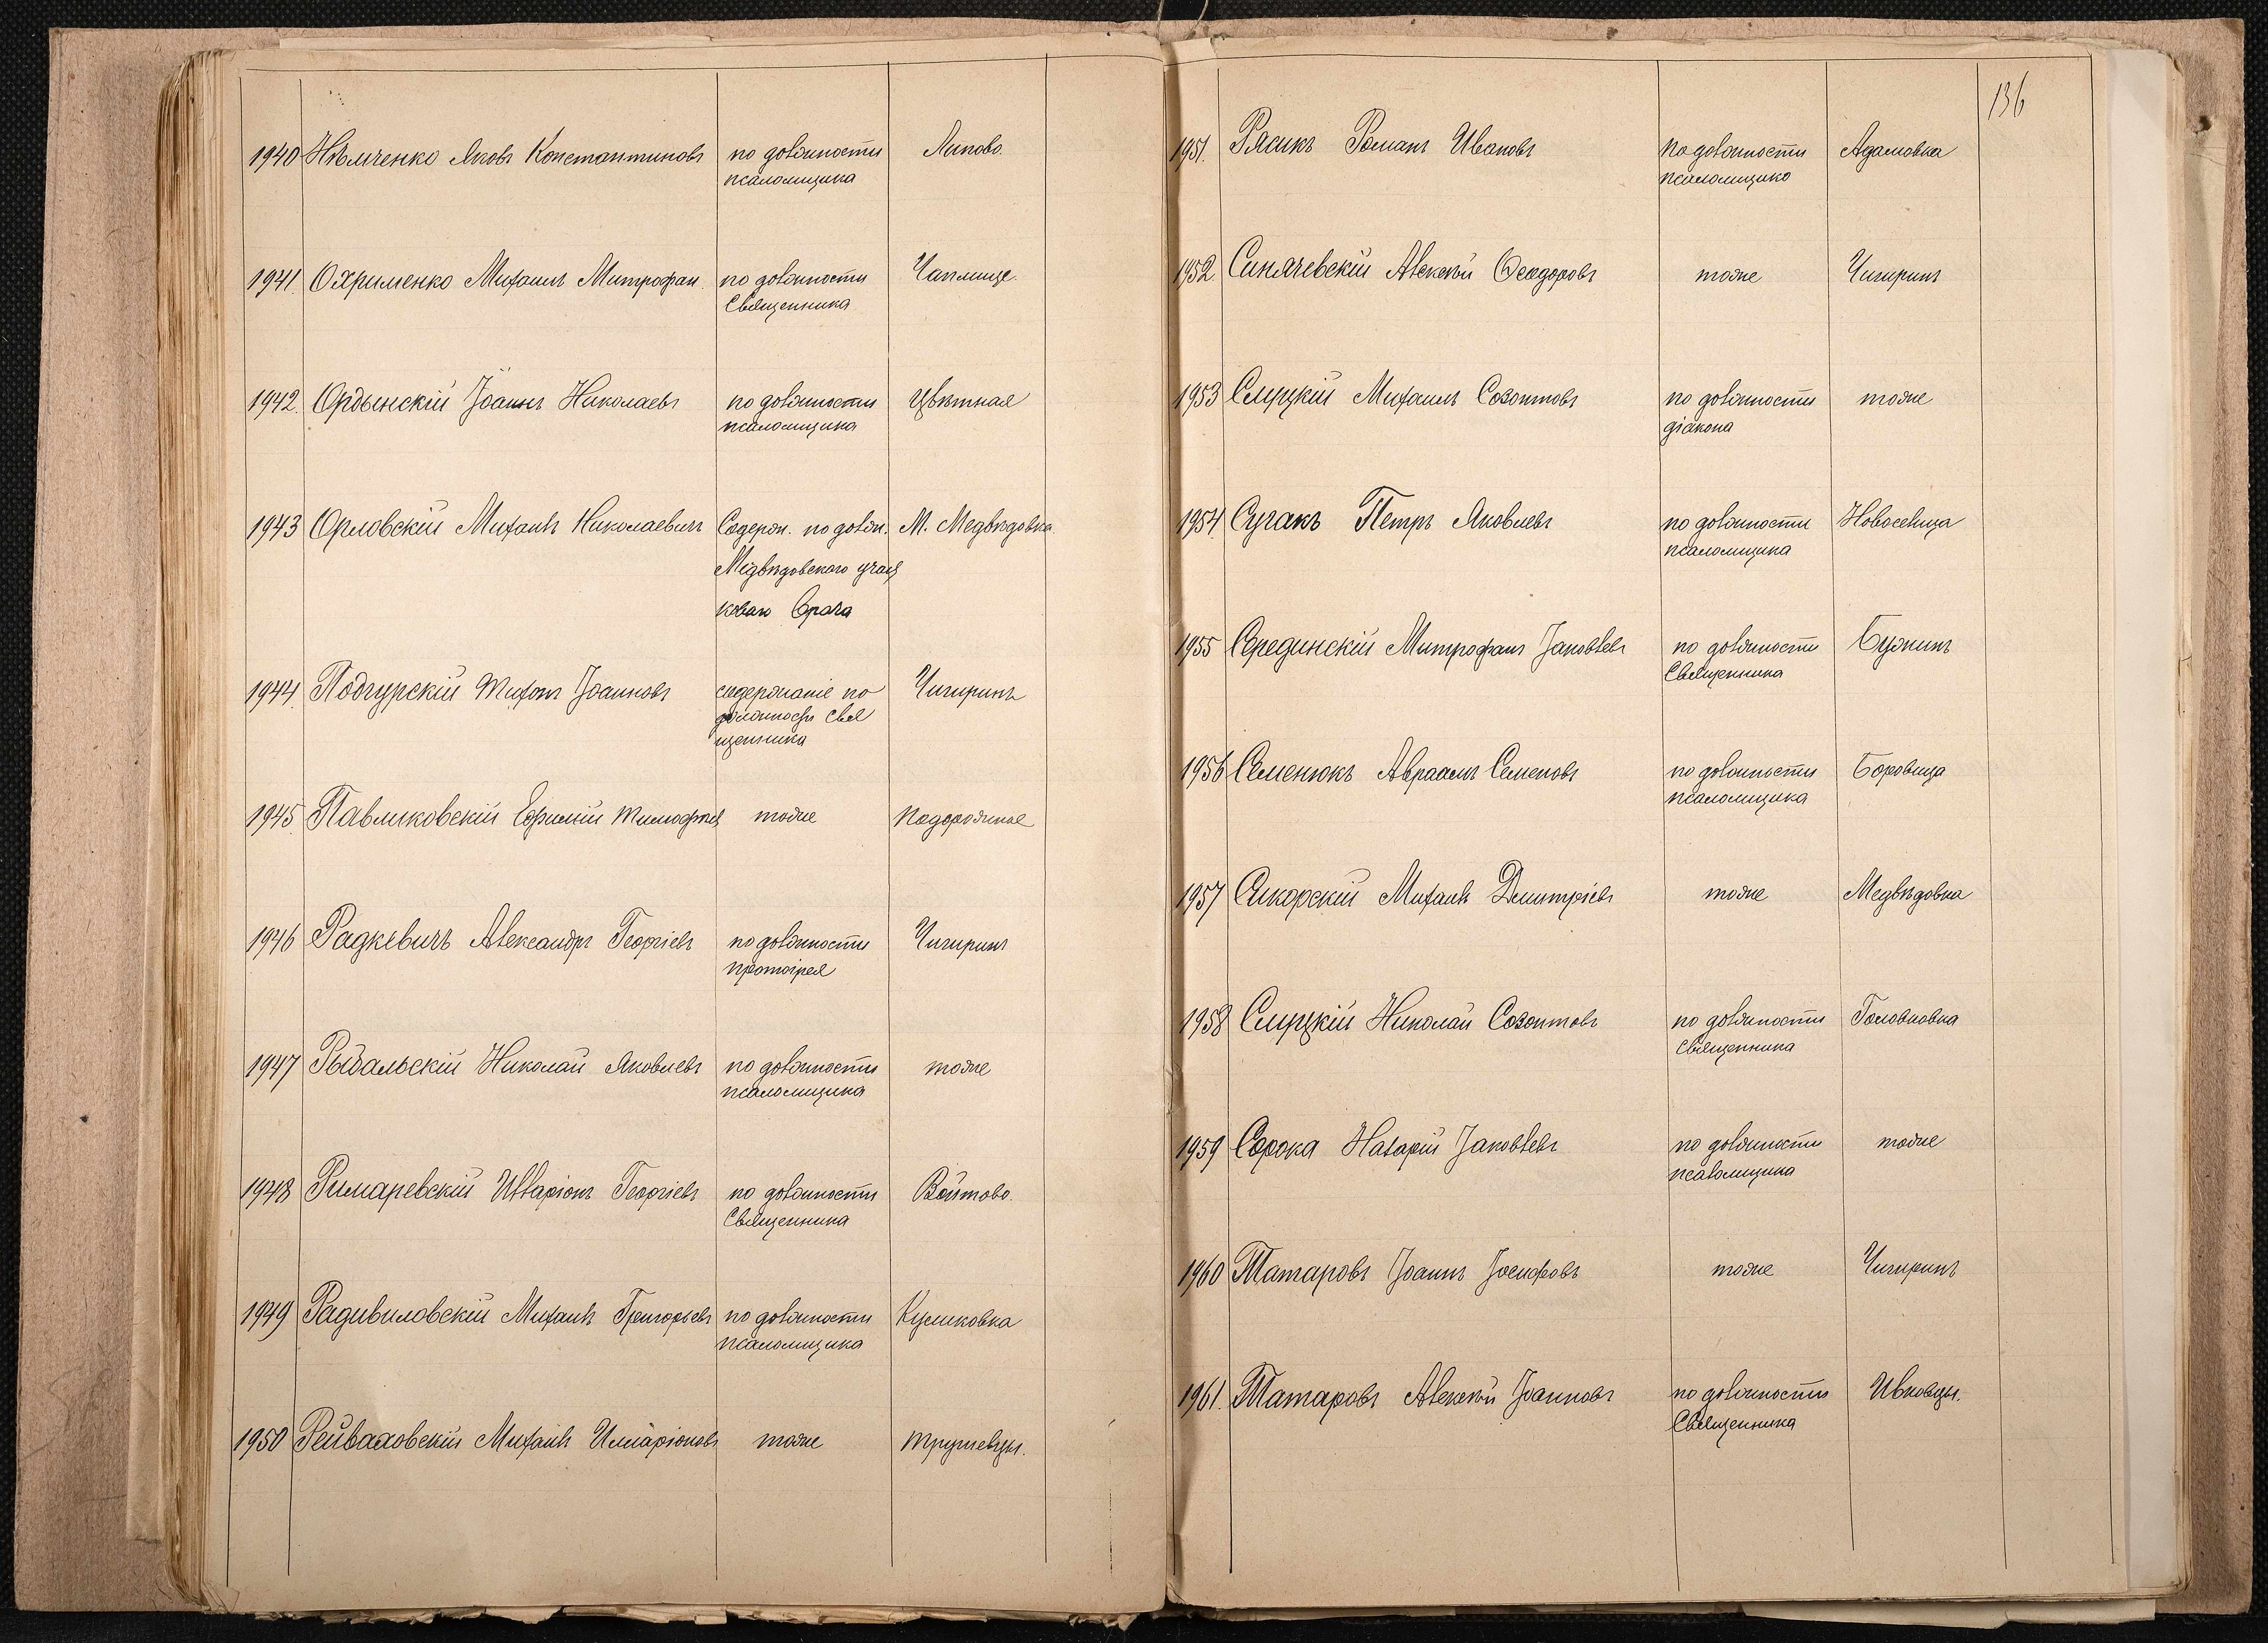 1940 Нѣмченко Яковъ Константиновъ по должности Липово.
псаломщика
1941. Охрименко Михаилъ Митрофан. по должности Чаплище.
Священника
1942. Ордынскій Іоаннъ Николаевъ по должности Цвѣтная
псаломщика
1943 Орловскій Михаилъ Николаевичъ Содерж. по долж. М. Медвѣдовка.
Медвѣдовского участ
коваго Врача
1944. Подгурскій Тихонъ Іоанновъ содержаніе по Чигиринъ
должности Свя
щенника
1945. Павликовскій Ефимій Тимофѣев тоже Подорожное
1946 Радкевичъ Александръ Георгіевъ по должности Чигиринъ
протоірея
1947 Рыбальскій Николай Яковлевъ по должности тоже
псаломщика
1948 Римаревскій Илларіонъ Георгіевъ по должности Войтово.
Священника
1949 Радивиловскій Михаилъ Григорьевъ по должности Куликовка
псаломщика
1950 Рейваховскій Михаилъ Илларіоновъ тоже Трушевцы.
136
1951. Рясикъ Романъ Ивановъ по должности Адамовка
псаломщика
1952 Синячевскій Алексѣй Ѳеодоровъ тоже Чигиринъ
1953 Слуцкій Михаилъ Созонтовъ по должности тоже
діакона
1954 Сугакъ Петръ Яковлевъ по должности Новоселица
псаломщика
1955 Серединскій Митрофанъ Іаковлевъ по должности Бужинъ
Священника
1956 Семенюкъ Авраамъ Семеновъ по должности Боровица
псаломщика
1957 Сикорскій Михаилъ Дмитріевъ тоже Медвѣдовка
1958 Слуцкій Николай Созонтовъ по должности Головковка
Священника
1959 Сорока Назарій Іаковлевъ по должности тоже
псаломщика
1960 Татаровъ Іоаннъ Іосифовъ тоже Чигиринъ
1961. Татаровъ Алексѣй Іоанновъ по должности Ивковцы.
Священника